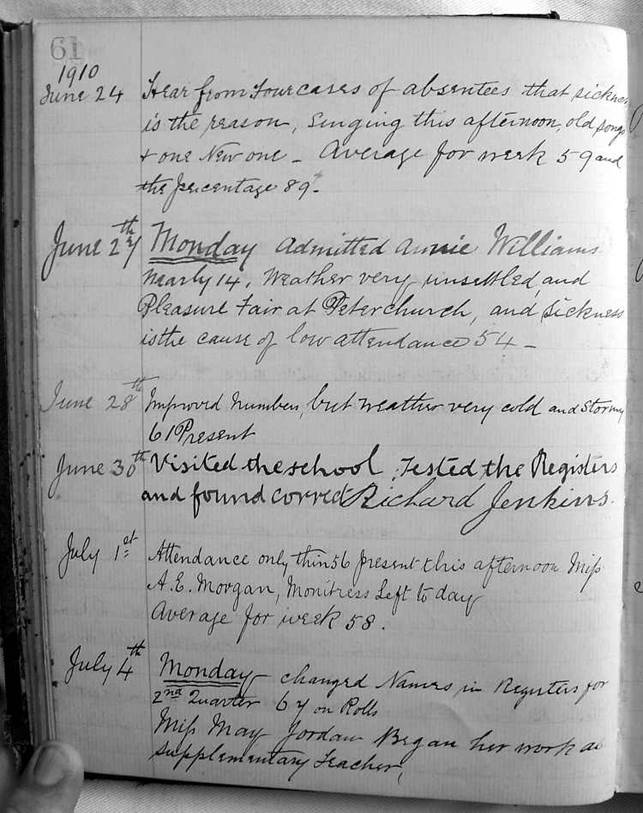 61
1910
June 24 Hear from four cases of absentees that sickness
is the reason, Singing this afternoon, old songs
+ one New one - Average for week 59 and
the Percentage 89.
June 27th Monday Admitted Annie Williams
nearly 14. Weather very unsettled, and
Pleasure Fair at Peterchurch, and Sickness
is the cause of low attendance 54 -
June 28th Improved Numbers, but weather very cold and Stormy
61 Present
June 30th Visited the school. Tested the Registers
and found correct Richard Jenkins.
July 1st Attendance only thin 56 present this afternoon Miss
A. E. Morgan, Monitress Left to day
Average for week 58.
July 4th Monday changed Names in Registers for
2nd Quarter 67 on Rolls
Miss May Jordan Began her work as
Supplementary Teacher,